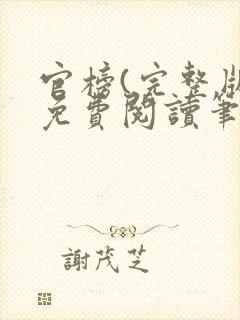 官榜(完整版
免費閱讀筆
謝茂芝